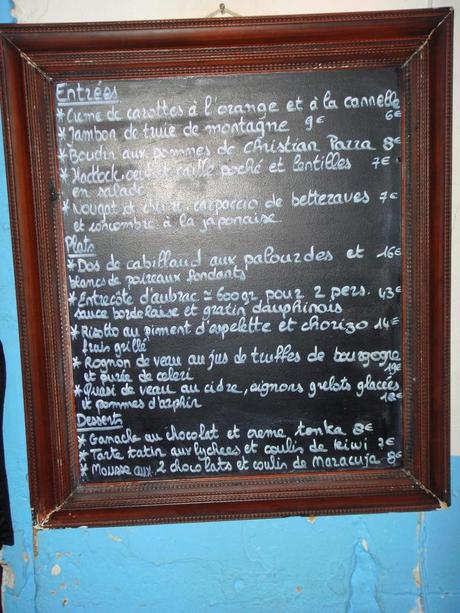 Entrées
* Crème de carottes à l'orange et à la cannelle 6€
* Jambon de truie de montagne 9€
* Boudin aux pommes de Christian Parra 8€
* Haddock, oeuf de caille poché et lentilles 7€
en salade
* Nougat de chèvre, carpaccio de betteraves 7€
et concombre à la japonaise
Plats
* Dos de cabillaud aux palourdes et 16€
blancs de poireaux fondants
* Entrecôte d'aubrac ≃ 600gr pour 2 pers. 43€
sauce bordelaise et gratin dauphinois
* Risotto au piment d'espelette et chorizo 14€
frais grillé
* Rognon de veau au jus de truffes de bourgogne
et purée de celeri 19€
* Quasi de veau au cidre, oignons grelots glacées
et pommes d'arphin 18€
Desserts
* Ganache au chocolat et creme tonka 8€
* Tarte tatin aux lychees et coulis de kiwi 7€
* Mousse aux 2 chocolats et coulis de Maracuja 8€